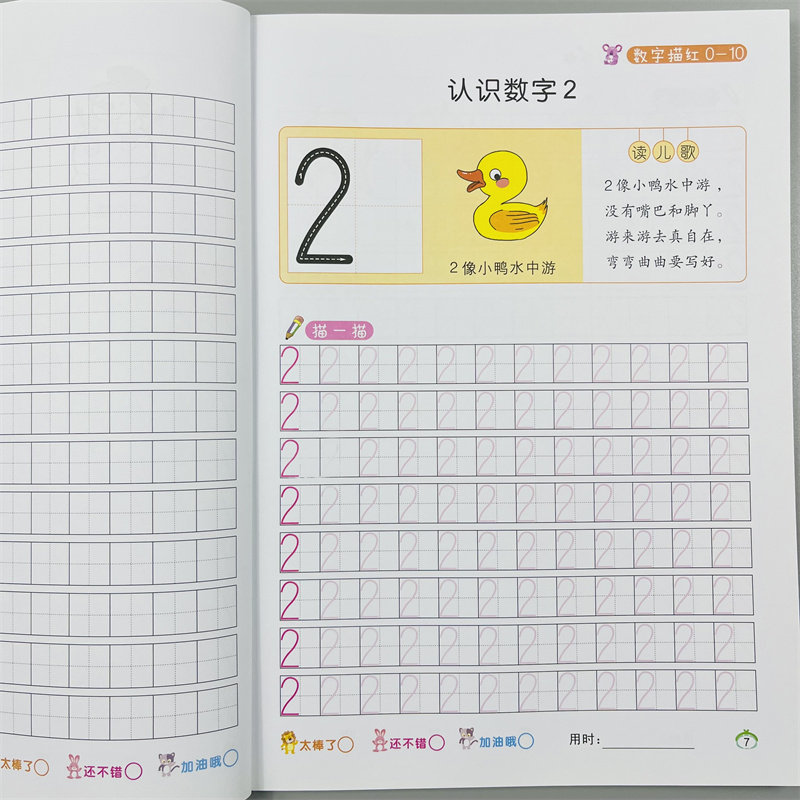 数字描红0-10
认识数字2
2
2像小鸭水中游
读儿歌
2像小鸭水中游，
没有嘴巴和脚丫。
游来游去真自在，
弯弯曲曲要写好。
描一描
2 2 2 2 2 2 2 2 2 2 2 2
2 2 2 2 2 2 2 2 2 2 2 2
2 2 2 2 2 2 2 2 2 2 2
2 2 2 2 2 2 2 2 2 2 2 2
2 2 2 2 2 2 2 2 2 2 2 2
2 2 2 2 2 2 2 2 2 2 2 2
2 2 2 2 2 2 2 2 2 2 2 2
2 2 2 2 2 2 2 2 2 2 2 2
太棒了 还不错 加油哦
太棒了 还不错 加油哦 用时： 7